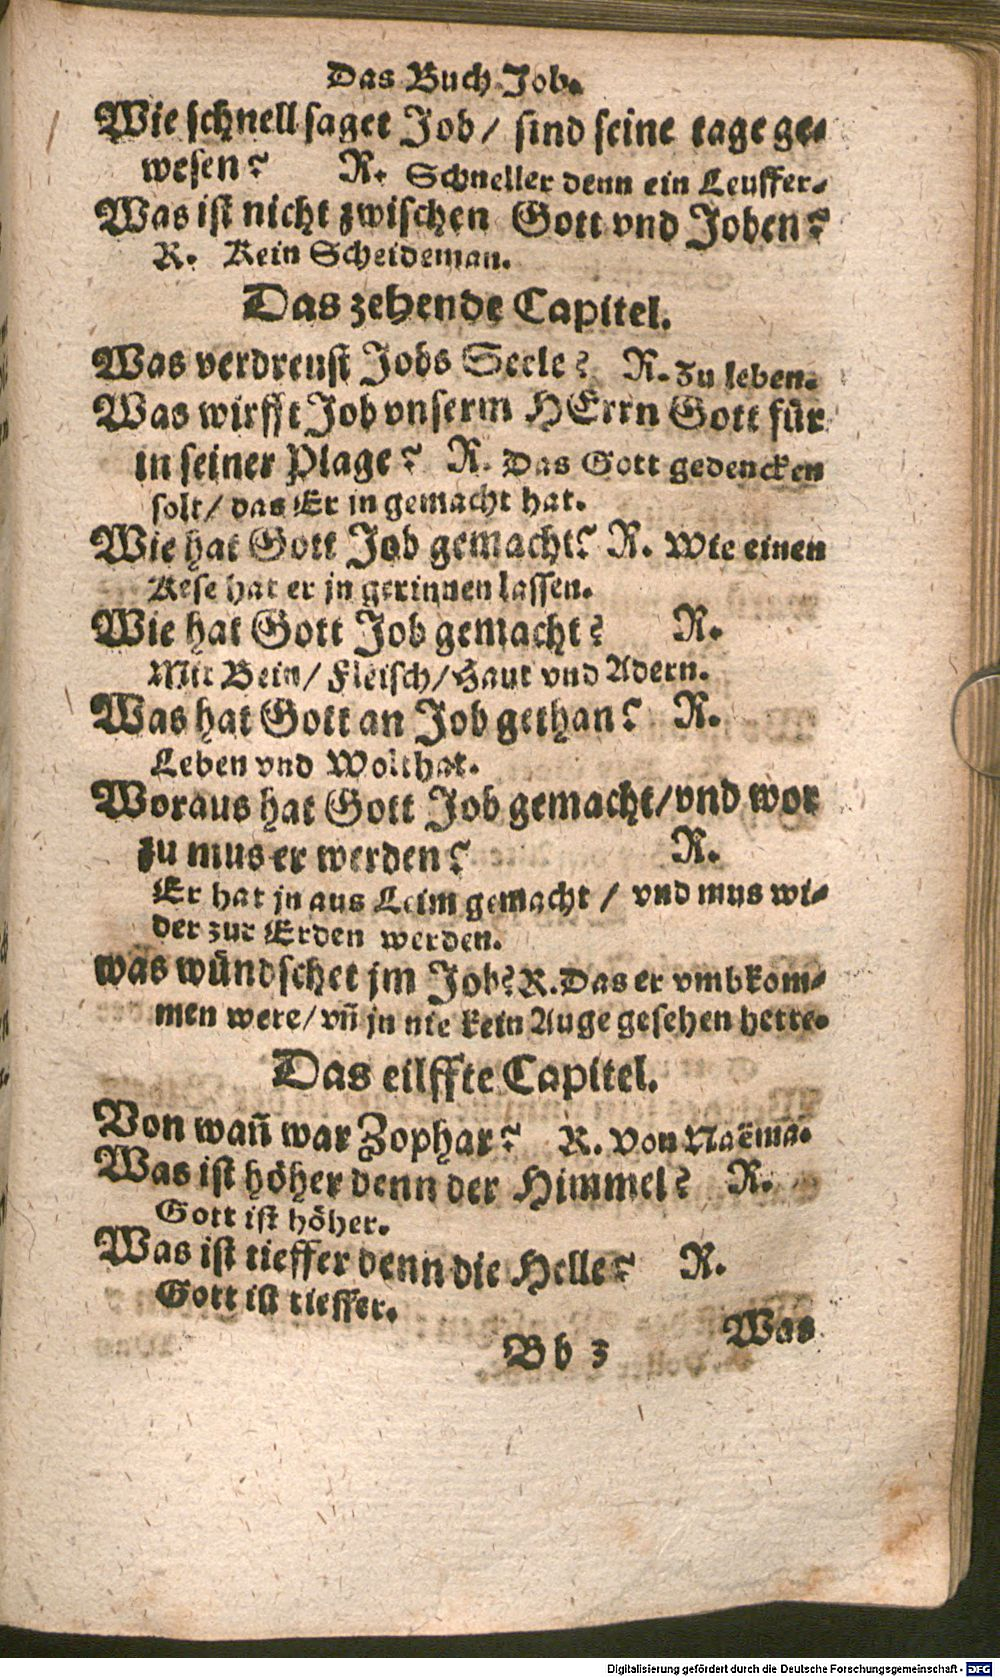 Das Buch Job.
Wie schnell saget Job/ sind seine tage ge-
wesen? R. Schneller denn ein Leuffer.
Was ist nicht zwischen Gott vnd Joben?
R. Kein Scheideman.
Das zehende Capitel.
Was verdreust Jobs Seele? R. Zu leben.
Was wirfft Job vnserm HErrn Gott für
in seiner Plage? R. Das Gott gedencken
solt/ das Er in gemacht hat.
Wie hat Gott Job gemacht? R. Wie einen
Kese hat er jn gerinnen lassen.
Wie hat Gott Job gemacht? R.
Mit Bein/ Fleisch/ Haut vnd Adern.
Was hat Gott an Job gethan? R.
Leben vnd Wolthat.
Woraus hat Gott Job gemacht/ vnd wor
zu mus er werden? R.
Er hat jn aus Leim gemacht / vnd mus wi-
der zur Erden werden.
was wündschet jm Job? R. Das er vmbkom-
men were/ vñ jn nie kein Auge gesehen hette.
Das eilffte Capitel.
Von wañ war Zophar? R. Von Naëma.
Was ist höher denn der Himmel? R.
Gott ist höher.
Was ist tieffer denn die Helle? R.
Gott ist tieffer.
Bb 3 Was
Digitalisierung gefördert durch die Deutsche Forschungsgemeinschaft - DFG